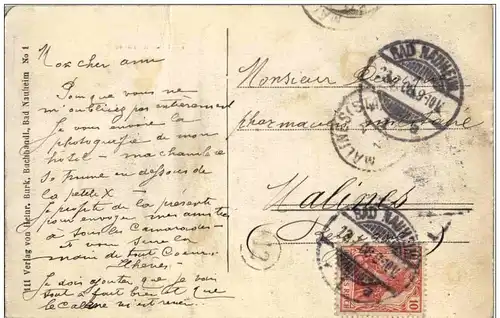 III Verlag von Heinr. Burk, Buchhandl., Bad Nauheim No 1
Mon cher ami
Pour que vous ne
m'oubliez pas entièrement
je vous envoie la
photografie de mon
hotel - ma chambre
se trouve en dessous de
la petite X -
Je profite de la présente
pour envoyer mes amitiés
à tous les Camarades
et vous serre la
main de tout Coeur
Je dois ajouter que je vais
tout à fait bien et que
le calme m'est revenu
Monsieur
pharmacien militaire
Malines
BAD NAUHEIM
MALINES
BAD NAUHEIM
12
10